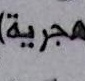 هجرية)